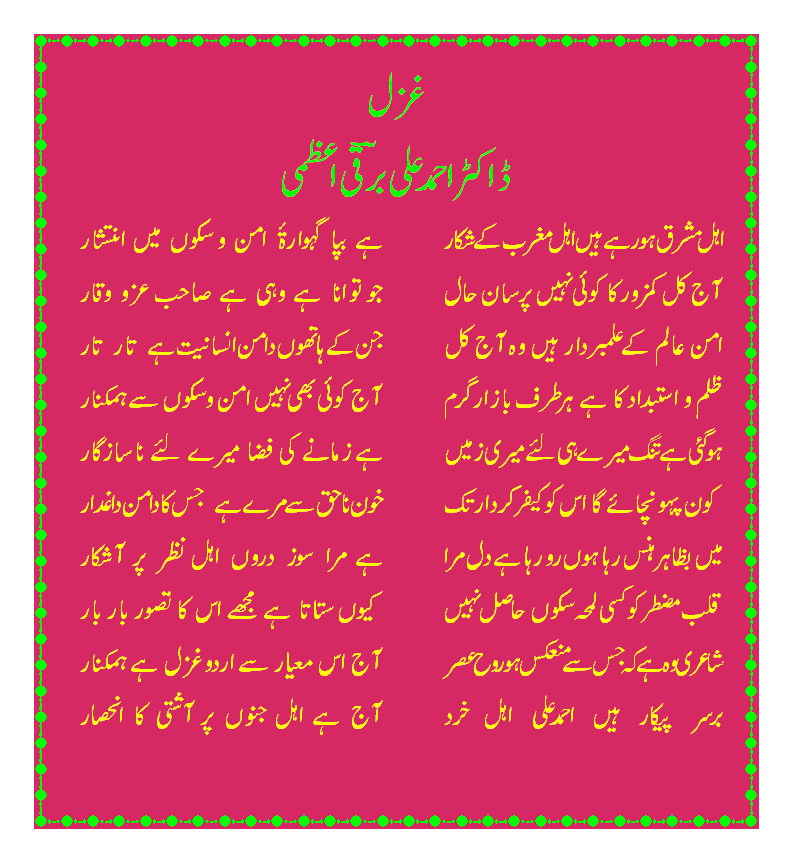 غزل
ڈاکٹر احمد علی برقیؔ اعظمی
اہل مشرق ہورہے ہیں اہل مغرب کے شکار ہے بپا گہوارۂ امن و سکوں میں انتشار
آج کل کمزور کا کوئی نہیں پرسان حال جو توانا ہے وہی ہے صاحب عزو وقار
امن عالم کے علمبردار ہیں وہ آج کل جن کے ہاتھوں دامن انسانیت ہے تار تار
ظلم و استبداد کا ہے ہر طرف بازار گرم آج کوئی بھی نہیں امن وسکوں سے ہمکنار
ہوگئی ہے تنگ میرے ہی لئے میری زمیں ہے زمانے کی فضا میرے لئے ناسازگار
کون پہونچائے گا اس کو کیفر کردار تک خون ناحق سے مرے ہے جس کا دامن داغدار
میں بظاہر ہنس رہا ہوں رو رہا ہے دل مرا ہے مرا سوز دروں اہل نظر پر آشکار
قلب مضطر کو کسی لمحہ سکوں حاصل نہیں کیوں ستاتا ہے مجھے اس کا تصور بار بار
شاعری وہ ہے کہ جس سے منعکس ہو روح عصر آج اس معیار سے اردو غزل ہے ہمکنار
برسر پیکار ہیں احمد علی اہل خرد آج ہے اہل جنوں پر آشتی کا انحصار